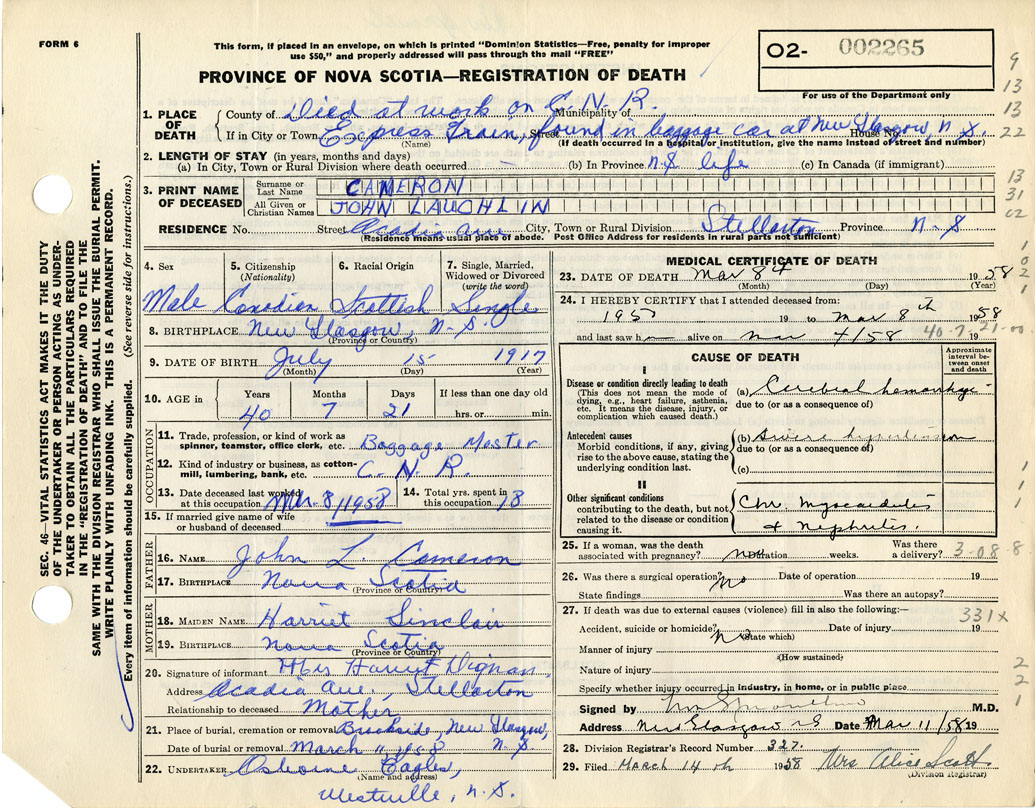 FORM 6
This form, if placed in an envelope, on which is printed "Dominion Statistics—Free, penalty for improper
use $50," and properly addressed will pass through the mail "FREE"
PROVINCE OF NOVA SCOTIA—REGISTRATION OF DEATH
O2- 002265
For use of the Department only
SEC. 46—VITAL STATISTICS ACT MAKES IT THE DUTY
OF THE UNDERTAKER OR PERSON ACTING AS UNDER-
TAKER TO OBTAIN ALL THE PARTICULARS REQUIRED
IN THE "REGISTRATION OF DEATH" AND TO FILE THE
SAME WITH THE DIVISION REGISTRAR WHO SHALL ISSUE THE BURIAL PERMIT.
WRITE PLAINLY WITH UNFADING INK. THIS IS A PERMANENT RECORD.
Every item of information should be carefully supplied. (See reverse side for instructions.)
1. PLACE OF DEATH
County of Died at work on C.N.R. Municipality of
If in City or Town Express Train, Street found in baggage car at New Glasgow, N.S. House No.
(Name) (If death occurred in a hospital or institution, give the name instead of street and number)
2. LENGTH OF STAY (in years, months and days)
(a) In City, Town or Rural Division where death occurred (b) In Province N.S life (c) In Canada (if immigrant)
3. PRINT NAME OF DECEASED
Surname or Last Name CAMERON
All Given or Christian Names JOHN LAUCHLIN
RESIDENCE No. Street Acadia Ave City, Town or Rural Division Stellarton Province N-S
(Residence means usual place of abode. Post Office Address for residents in rural parts not sufficient)
4. Sex 5. Citizenship (Nationality) 6. Racial Origin 7. Single, Married, Widowed or Divorced (write the word)
Male Canadian Scottish Single
8. BIRTHPLACE New Glasgow, N.S.
(Province or Country)
9. DATE OF BIRTH July 15 1917
(Month) (Day) (Year)
10. AGE in Years Months Days If less than one day old
40 7 21 hrs. or min.
OCCUPATION
11. Trade, profession, or kind of work as spinner, teamster, office clerk, etc. Baggage Master
12. Kind of industry or business, as cotton-mill, lumbering, bank, etc. C.N.R.
13. Date deceased last worked at this occupation Mar. 8/1958 14. Total yrs. spent in this occupation 18
15. If married give name of wife or husband of deceased
FATHER
16. NAME John L Cameron
17. BIRTHPLACE Nova Scotia
(Province or Country)
MOTHER
18. MAIDEN NAME Harriet Sinclair
19. BIRTHPLACE Nova Scotia
(Province or Country)
20. Signature of informant Mrs Harriet Dignan
Address Acadia Ave., Stellarton
Relationship to deceased Mother
21. Place of burial, cremation or removal Brookside, New Glasgow, N.S.
Date of burial or removal March 11, 1958
22. UNDERTAKER Osborne Eagles,
(Name and address)
Westville, N.S.
MEDICAL CERTIFICATE OF DEATH
23. DATE OF DEATH Mar 8th 1958
(Month) (Day) (Year)
24. I HEREBY CERTIFY that I attended deceased from:
195 19 to Mar 8th 1958
and last saw h alive on Mar 4/58 19
40-7-21-00
CAUSE OF DEATH
Approximate interval between onset and death
I
Disease or condition directly leading to death
(This does not mean the mode of dying, e.g., heart failure, asthenia, etc. It means the disease, injury, or complication which caused death.)
(a) Cerebral hemorrhage
due to (or as a consequence of)
Antecedent causes
Morbid conditions, if any, giving rise to the above cause, stating the underlying condition last.
(b) Severe hypertension
due to (or as a consequence of)
(c)
II
Other significant conditions
contributing to the death, but not related to the disease or condition causing it.
Chr. Myocarditis
& Nephritis.
25. If a woman, was the death associated with pregnancy? duration weeks. Was there a delivery? 3-08-8
26. Was there a surgical operation? no Date of operation 19
State findings Was there an autopsy?
27. If death was due to external causes (violence) fill in also the following:—
331x
Accident, suicide or homicide? no Date of injury 19
(State which)
Manner of injury
(How sustained)
Nature of injury
Specify whether injury occurred in industry, in home, or in public place
Signed by M.D.
Address New Glasgow NS Date Mar 11/58 19
28. Division Registrar's Record Number 327.
29. Filed MARCH 14th 1958 Mrs Alice Scott
(Division Registrar)
9
13
13
22
13
31
02
1
0
2
1
1
1
1
2
2
1